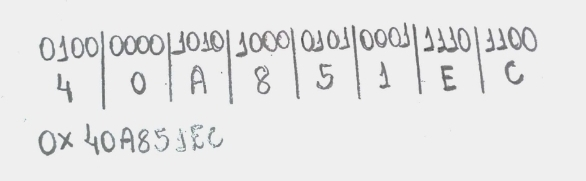 0100|0000|1010|1000|0101|0001|1110|1100
4|0|A|8|5|1|E|C
0x40A851EC